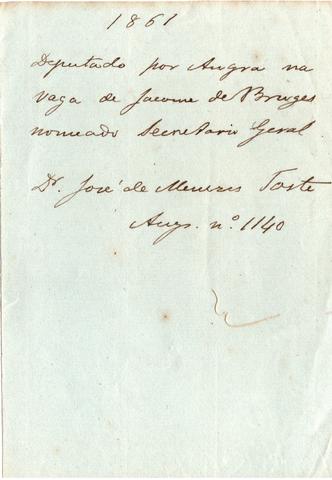 1861
Deputado por Angra na
vaga de Jacome de Bruges
nomeado Secretario Geral
Dr. José de Menezes Toste
Ang. n.º 1140